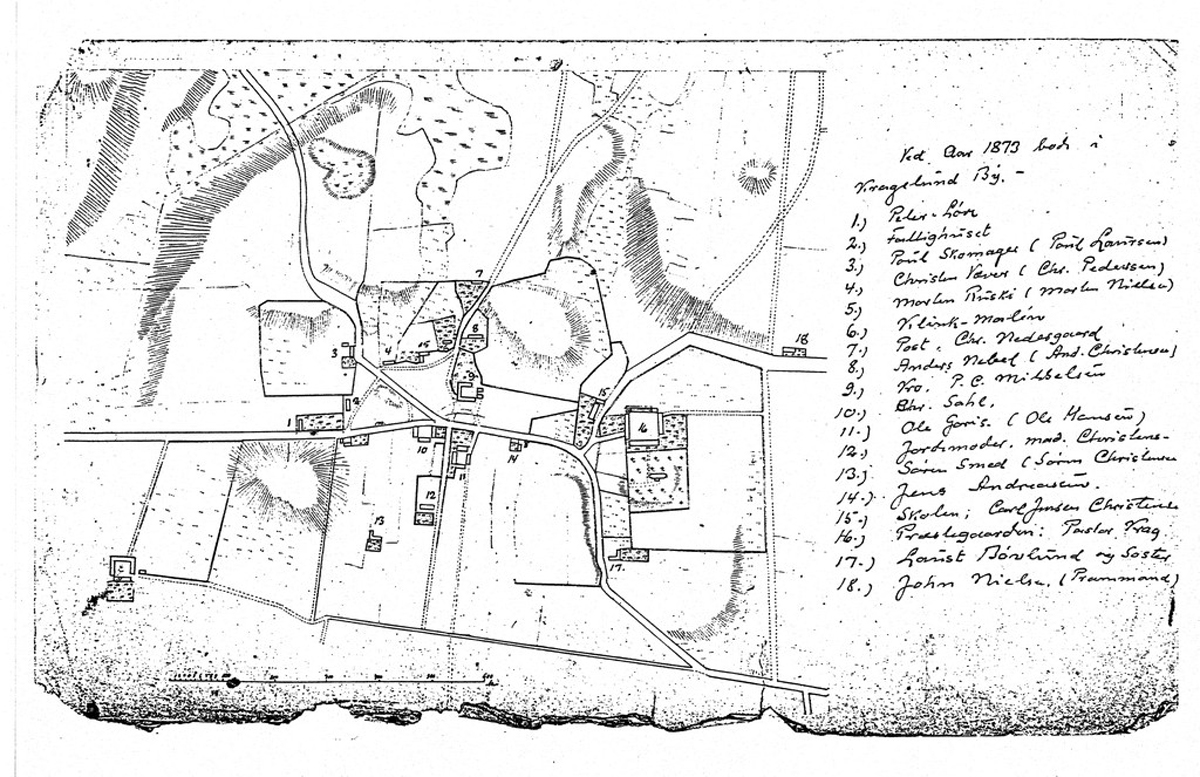 Ved Aar 1873 boede i
Kragelund By. -
1.) Peter
2.) Fattighuset
3.) Paul Skomager (Paul Laursen)
4.) Christen Væver (Chr. Pedersen)
5.) Morten Ruski (Morten Nielsen)
6.) Klink-Malin
7.) Post. Chr. Nedergaard
8.) Anders Nebel (And. Christensen)
9.) Kro. P.C. Mikkelsen
10.) Sahl.
11.) Ole Goris. (Ole Hansen)
12.) Jordemoder. mad. Christens-
13.) Sören Smed (Sören Christensen
14.) Jens Andreasen.
15.) Skolen; Carl Jensen Christens
16.) Præstegaarden: Pastor Krag
17.) Laust og Söster
18.) John Nielse. (Prammand)
1
2
3
4
15
7
8
9
10
11
12
13
14
15
16
17.
18